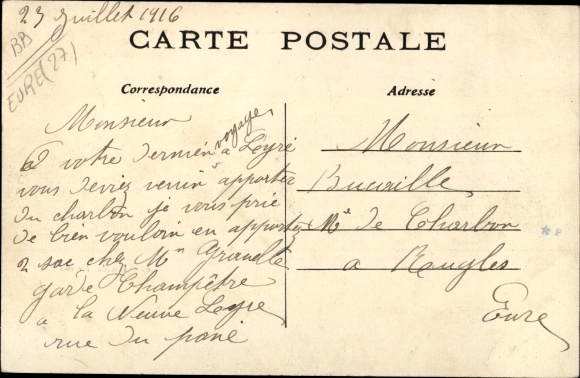 23 Juillet 1916
BB
EURE (27)
CARTE POSTALE
Correspondance
Adresse
Monsieur
a votre dernier voyage a Lyre
vous deviez venir apporter
du charbon je vous prie
de bien vouloir en apporter
2 sac chez Mr
garde Champêtre
a la Neuve Lyre
rue du
Monsieur
Md de Charbon
a Rugles
Eure